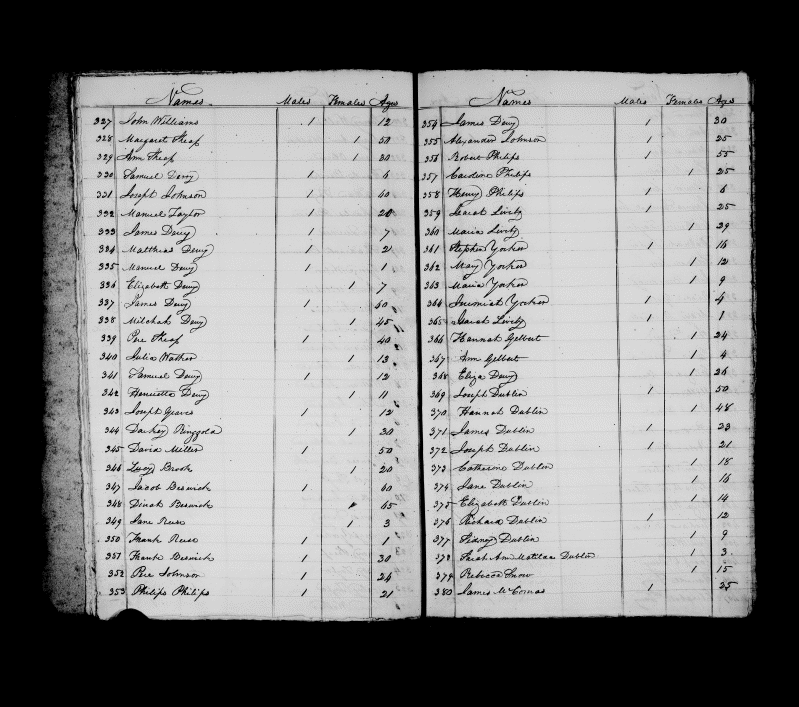 Names. Males Females Ages
327 John Williams 1 12
328 Margaret Heap 1 50
329 Ann Heap 1 30
330 Samuel Dewy 1 6
331 Joseph Johnson 1 40
332 Manuel Taylor 1 20
333 James Dewy 1 7
334 Matthias Dewy 1 2
335 Manuel Dewy 1 1
336 Elizabeth Dewy 1 7
337 James Dewy 1 60
338 Dewy 1 45
339 Pere Heap 1 40
340 Julia 1 13
341 Samuel Dewy 1 12
342 Henrietta Dewy 1 11
343 Joseph Graves 1 12
344 Darkey Ringgold 1 30
345 David Miller 1 50
346 Lucy Brook 1 20
347 Jacob Beswick 1 60
348 Dinah Beswick 1 65
349 Jane 1 3
350 Frank 1 1
351 Frank Beswick 1 30
352 Pere Johnson 1 24
353 Philips Philips 1 21
Names Males Females Ages
354 James Dewy 1 30
355 Alexander Johnson 1 25
356 Robert Philips 1 55
357 Caroline Philips 1 25
358 Henry Philips 1 6
359 Isaiah Lively 1 25
360 Maria Lively 1 29
361 Stephen Yorker 1 16
362 May Yorker 1 12
363 Maria Yorker 1 9
364 Jeremiah Yorker 1 4
365 Isaiah Lively 1 1
366 Hannah Gelbert 1 24
367 Ann Gelbert 1 4
368 Eliza Dewy 1 26
369 Joseph Dublin 1 50
370 Hannah Dublin 1 48
371 James Dublin 1 23
372 Joseph Dublin 1 21
373 Catharine Dublin 1 18
374 Jane Dublin 1 16
375 Elizabeth Dublin 1 14
376 Richard Dublin 1 12
377 Sidney Dublin 1 9
378 Sarah Ann Matilda Dublin 1 3
379 Rebecca Snow 1 15
380 James McComas 1 25